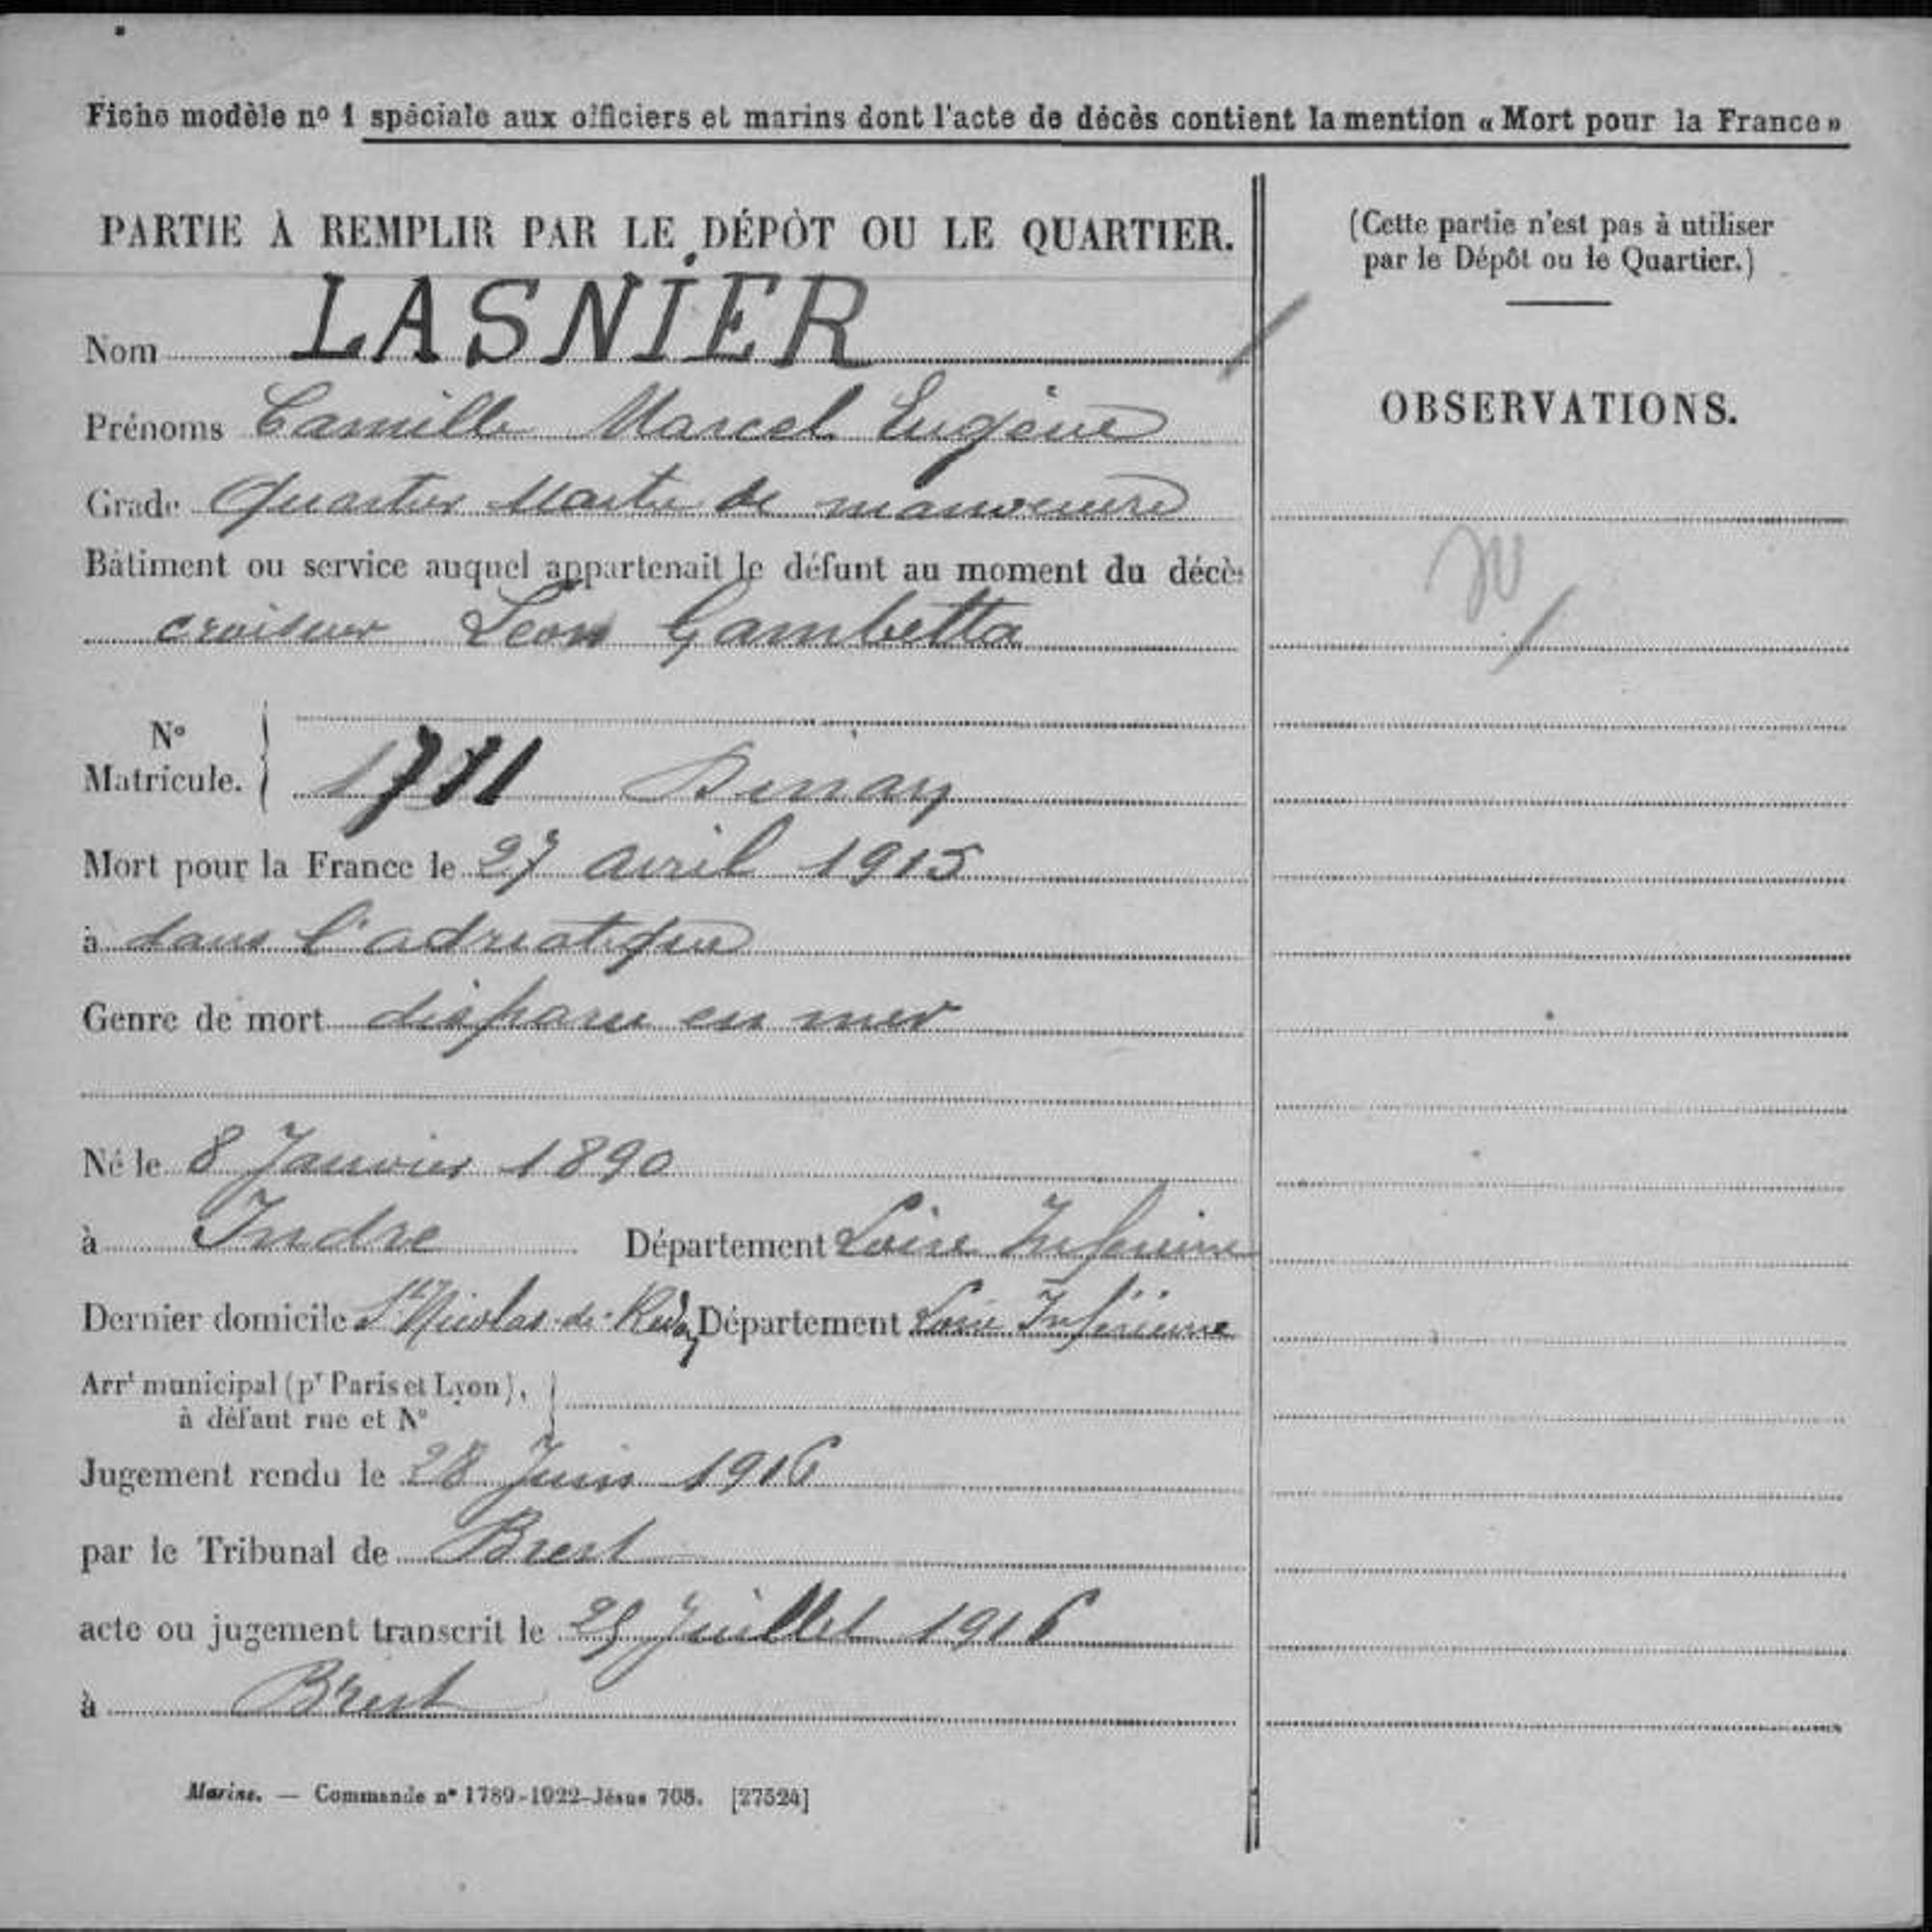 Fiche modèle nº 1 spéciale aux officiers et marins dont l'acte de décès contient la mention « Mort pour la France »
PARTIE À REMPLIR PAR LE DÉPÔT OU LE QUARTIER.
Nom LASNIER
Prénoms Camille Marcel Eugène
Grade Quartier Maitre de manoeuvre
Bâtiment ou service auquel appartenait le défunt au moment du décès
croiseur Léon Gambetta
Nº
Matricule.
Dinan
Mort pour la France le 27 avril 1915
à dans l'adriatique
Genre de mort disparu en mer
Né le 8 Janvier 1890
à Indre Département Loire Inférieure
Dernier domicile St Nicolas-de-Redon Département Loire Inférieure
Arrt municipal (pr Paris et Lyon),
à défaut rue et Nº
Jugement rendu le 28 Juin 1916
par le Tribunal de Brest
acte ou jugement transcrit le Juillet 1916
à Brest
Marine. — Commande nº 1789-1922-Jésus 708. [27524]
(Cette partie n'est pas à utiliser
par le Dépôt ou le Quartier.)
OBSERVATIONS.